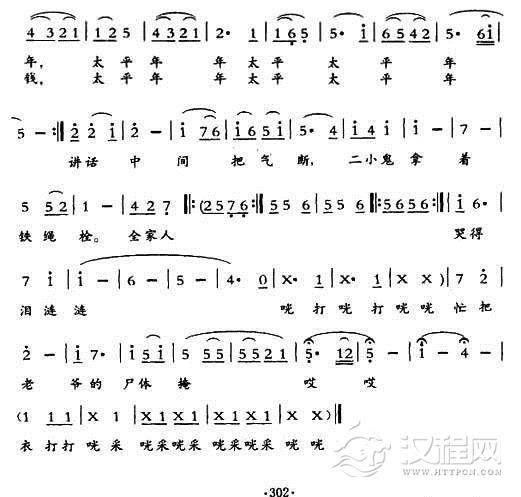 4 3 2 1 | 1 2 5 | 4 3 2 1 | 2· 1 | 1 1 6 5 | 5· i | 6 5 4 2 | 5· 6 i |
年, 太 平 年 年 太 平 太 平 年
钱, 太 平 年 年 太 平 太 平 年
5 - :‖ 2 2 i | 2 - | i 7 6 | i 6 5 i | 5· 4 | i 4 i | i - | 7 - |
讲 话 中 间 把 气 断, 二 小 鬼 拿 着
5 5 2 | 1 - | 4 2 7 ‖: (2 5 7 6 :‖ 5 5 6 | 5 5 6 ‖: 5 6 5 6 :‖ i 6· |
铁 绳 栓。 全 家 人 哭 得
7 i | i - | 6 - | 5 - | 4· 0 | X· 1 | X· 1 | X X | 7 2 |
泪 涟 涟 咣 打 咣 打 咣 咣 忙 把
2 - | i 7· | i 5 i | 5 5 5 5 2 1 | 5· 1 2 | 5 - | i - | 4 - |
老 爷 的 尸 体 掩 哎 哎
(1 1 1 | X 1 | X 1 X 1 | X 1 X 1 | X X)‖
衣 打 打 咣 采 咣采 咣采 咣采 咣采 咣 咣
汉程网
WWW.HTTPCN.COM
·302·